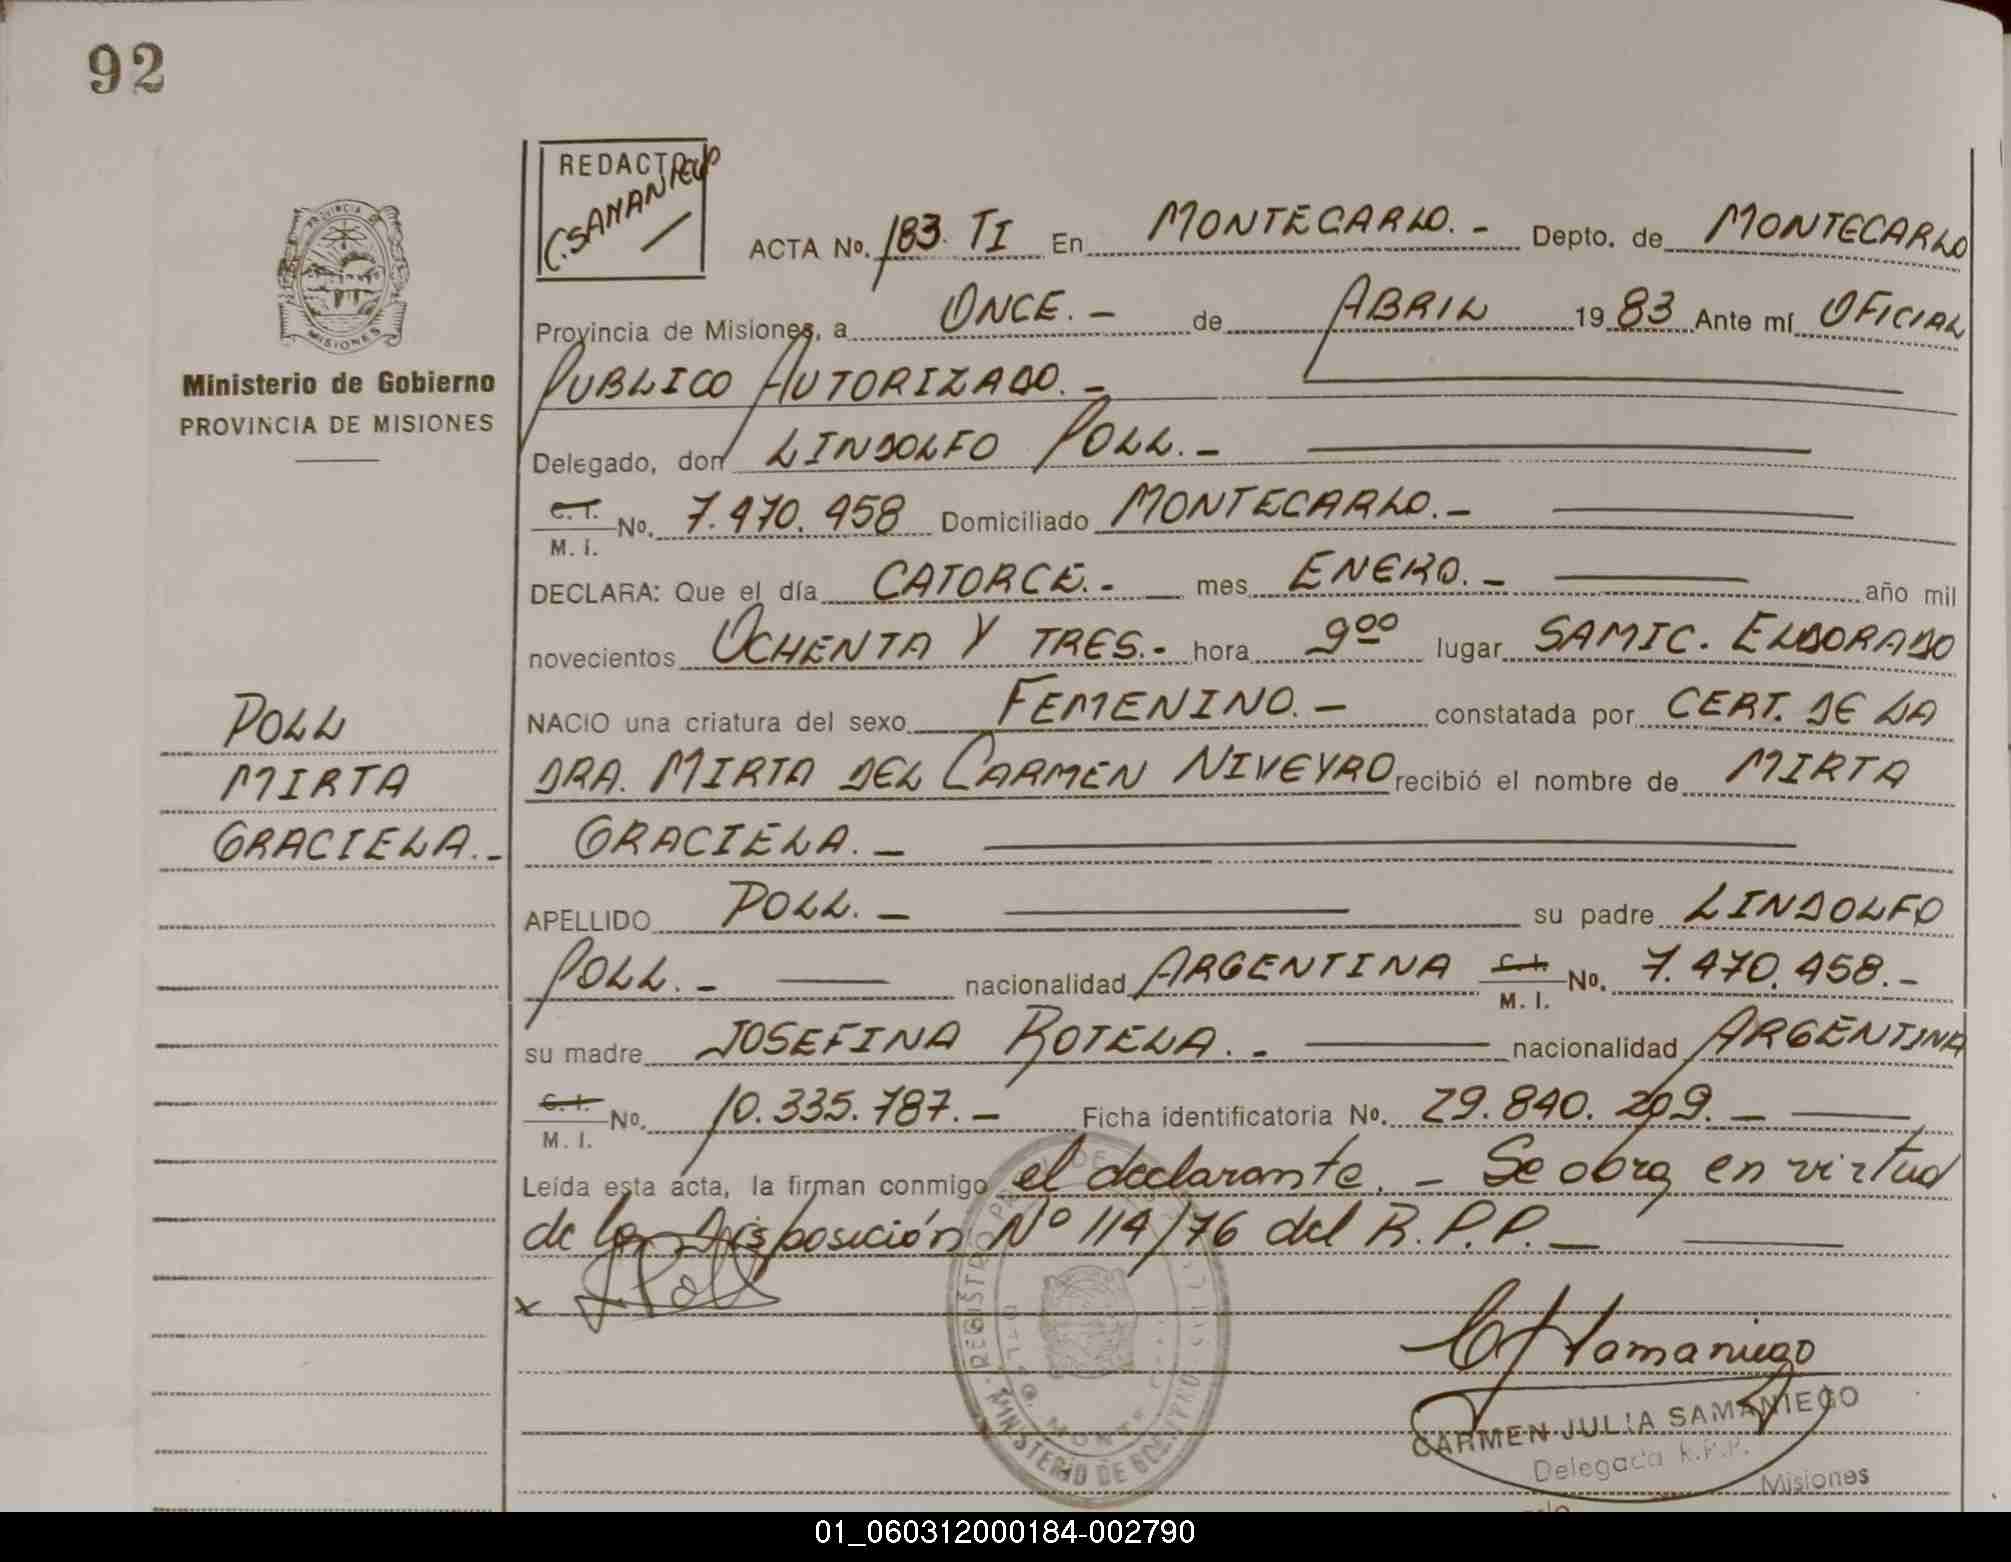 92
REDACTO
C. SAMANIEGO
ACTA No. 183. TI En MONTECARLO.- Depto. de MONTECARLO
Provincia de Misiones, a ONCE.- de ABRIL 1983 Ante mí OFICIAL
PUBLICO AUTORIZADO.-
Delegado, don LINDOLFO POLL.-
C.I. / M. I. No. 7.470.458 Domiciliado MONTECARLO.-
DECLARA: Que el día CATORCE.- mes ENERO.- año mil
novecientos OCHENTA Y TRES.- hora 900 lugar SAMIC. ELDORADO
NACIO una criatura del sexo FEMENINO.- constatada por CERT. DE LA
DRA. MIRTA DEL CARMEN NIVEYRO recibió el nombre de MIRTA
GRACIELA.-
APELLIDO POLL.- su padre LINDOLFO
POLL.- nacionalidad ARGENTINA C.I. / M. I. No. 7.470.458.-
su madre JOSEFINA ROTELA.- nacionalidad ARGENTINA
C.I. / M. I. No. 10.335.787.- Ficha identificatoria No. 29.840.209.-
Leída esta acta, la firman conmigo el declarante.- Se obra en virtud
de la Disposición Nº 114/76 del R.P.P.-
x Poll
Samaniego
CARMEN JULIA SAMANIEGO
Delegada R.P.P.
Misiones
PROVINCIA DE
MISIONES
Ministerio de Gobierno
PROVINCIA DE MISIONES
POLL
MIRTA
GRACIELA.-
REGISTRO
MINISTERIO DE GOBIERNO
01_060312000184-002790